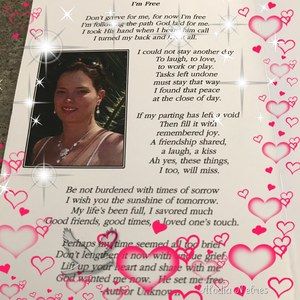 I'm Free
Don't grieve for me, for now I'm free
I'm following the path God laid for me.
I took His hand when I heard him call
I turned my back and left all.
I could not stay another day
To laugh, to love,
to work or play.
Tasks left undone
must stay that way
I found that peace
at the close of day.
If my parting has left a void
Then fill it with
remembered joy.
A friendship shared,
a laugh, a kiss
Ah yes, these things,
I too, will miss.
Be not burdened with times of sorrow
I wish you the sunshine of tomorrow.
My life's been full, I savored much
Good friends, good times, a loved one's touch.
Perhaps my time seemed all too brief
Don't lengthen it now with undue grief.
Lift up your heart and share with me
God wanted me now. He set me free.
Author Unknown